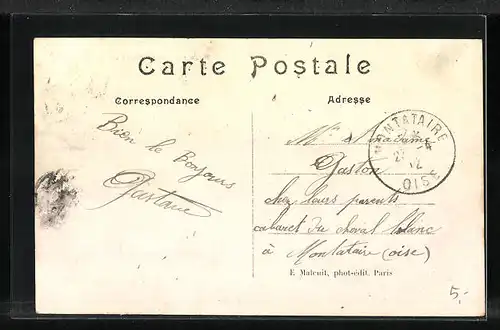 Carte Postale
Correspondance
Adresse
Bien le Bonjour
Gustave
MONTATAIRE
OISE
Gaston
chez leurs parents
cabaret du cheval blanc
à Montataire (oise)
E. Maleuit, phot-édit. Paris
5,-